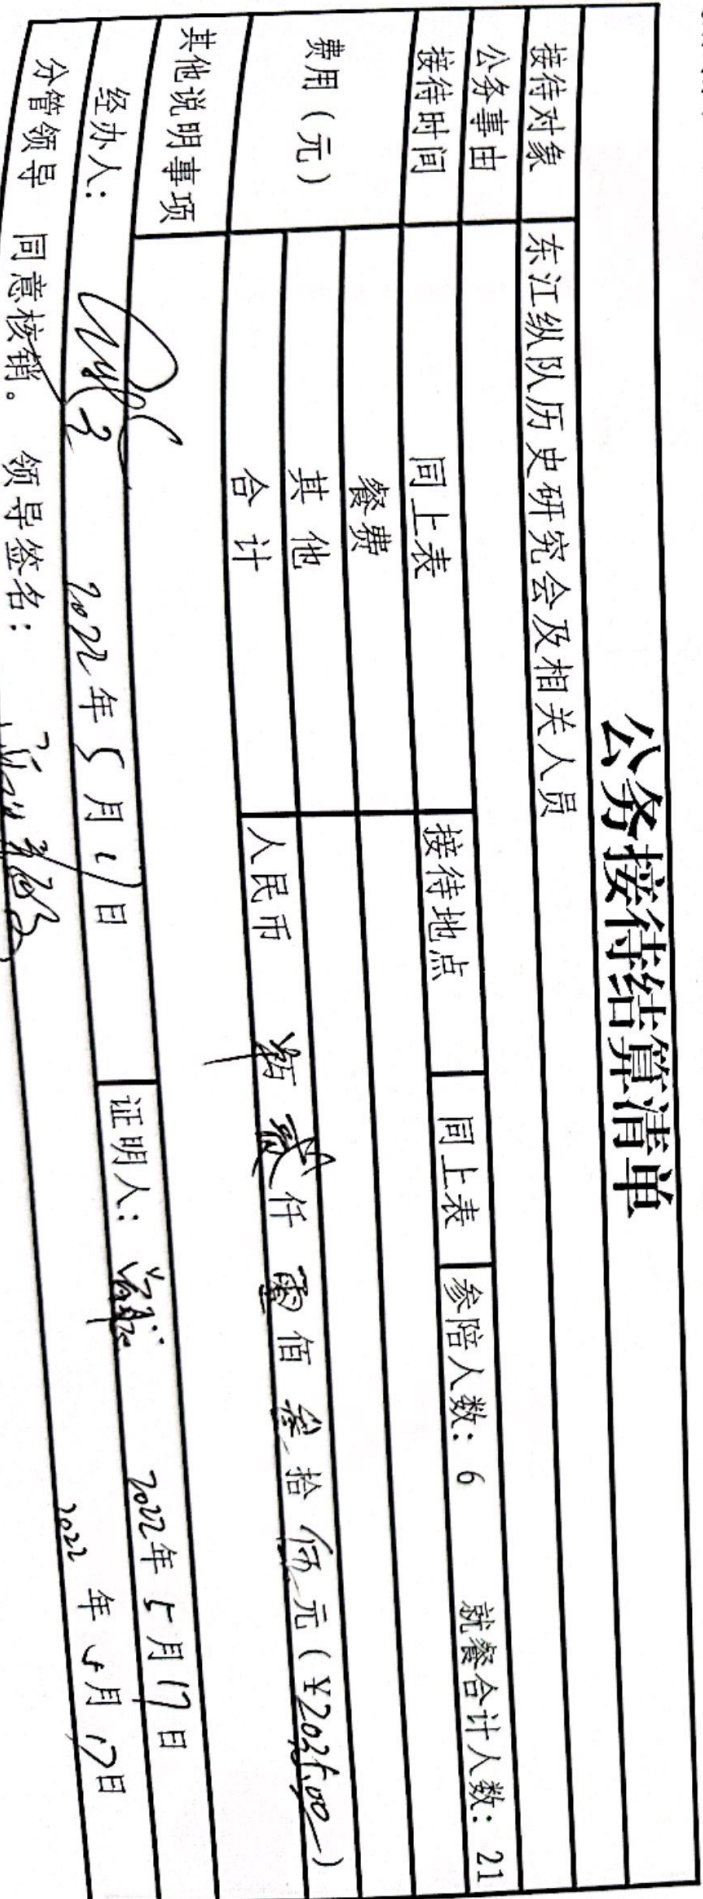 公务接待结算清单
接待对象 东江纵队历史研究会及相关人员
公务事由
接待时间 同上表 接待地点 同上表 参陪人数：6 就餐合计人数：21
费用（元） 餐费
其他
合计 人民币 贰仟零佰叁拾伍元（¥2035.00）
其他说明事项
经办人： 2022年5月17日 证明人： 2022年5月17日
分管领导 同意核销。 领导签名： 2022年5月17日